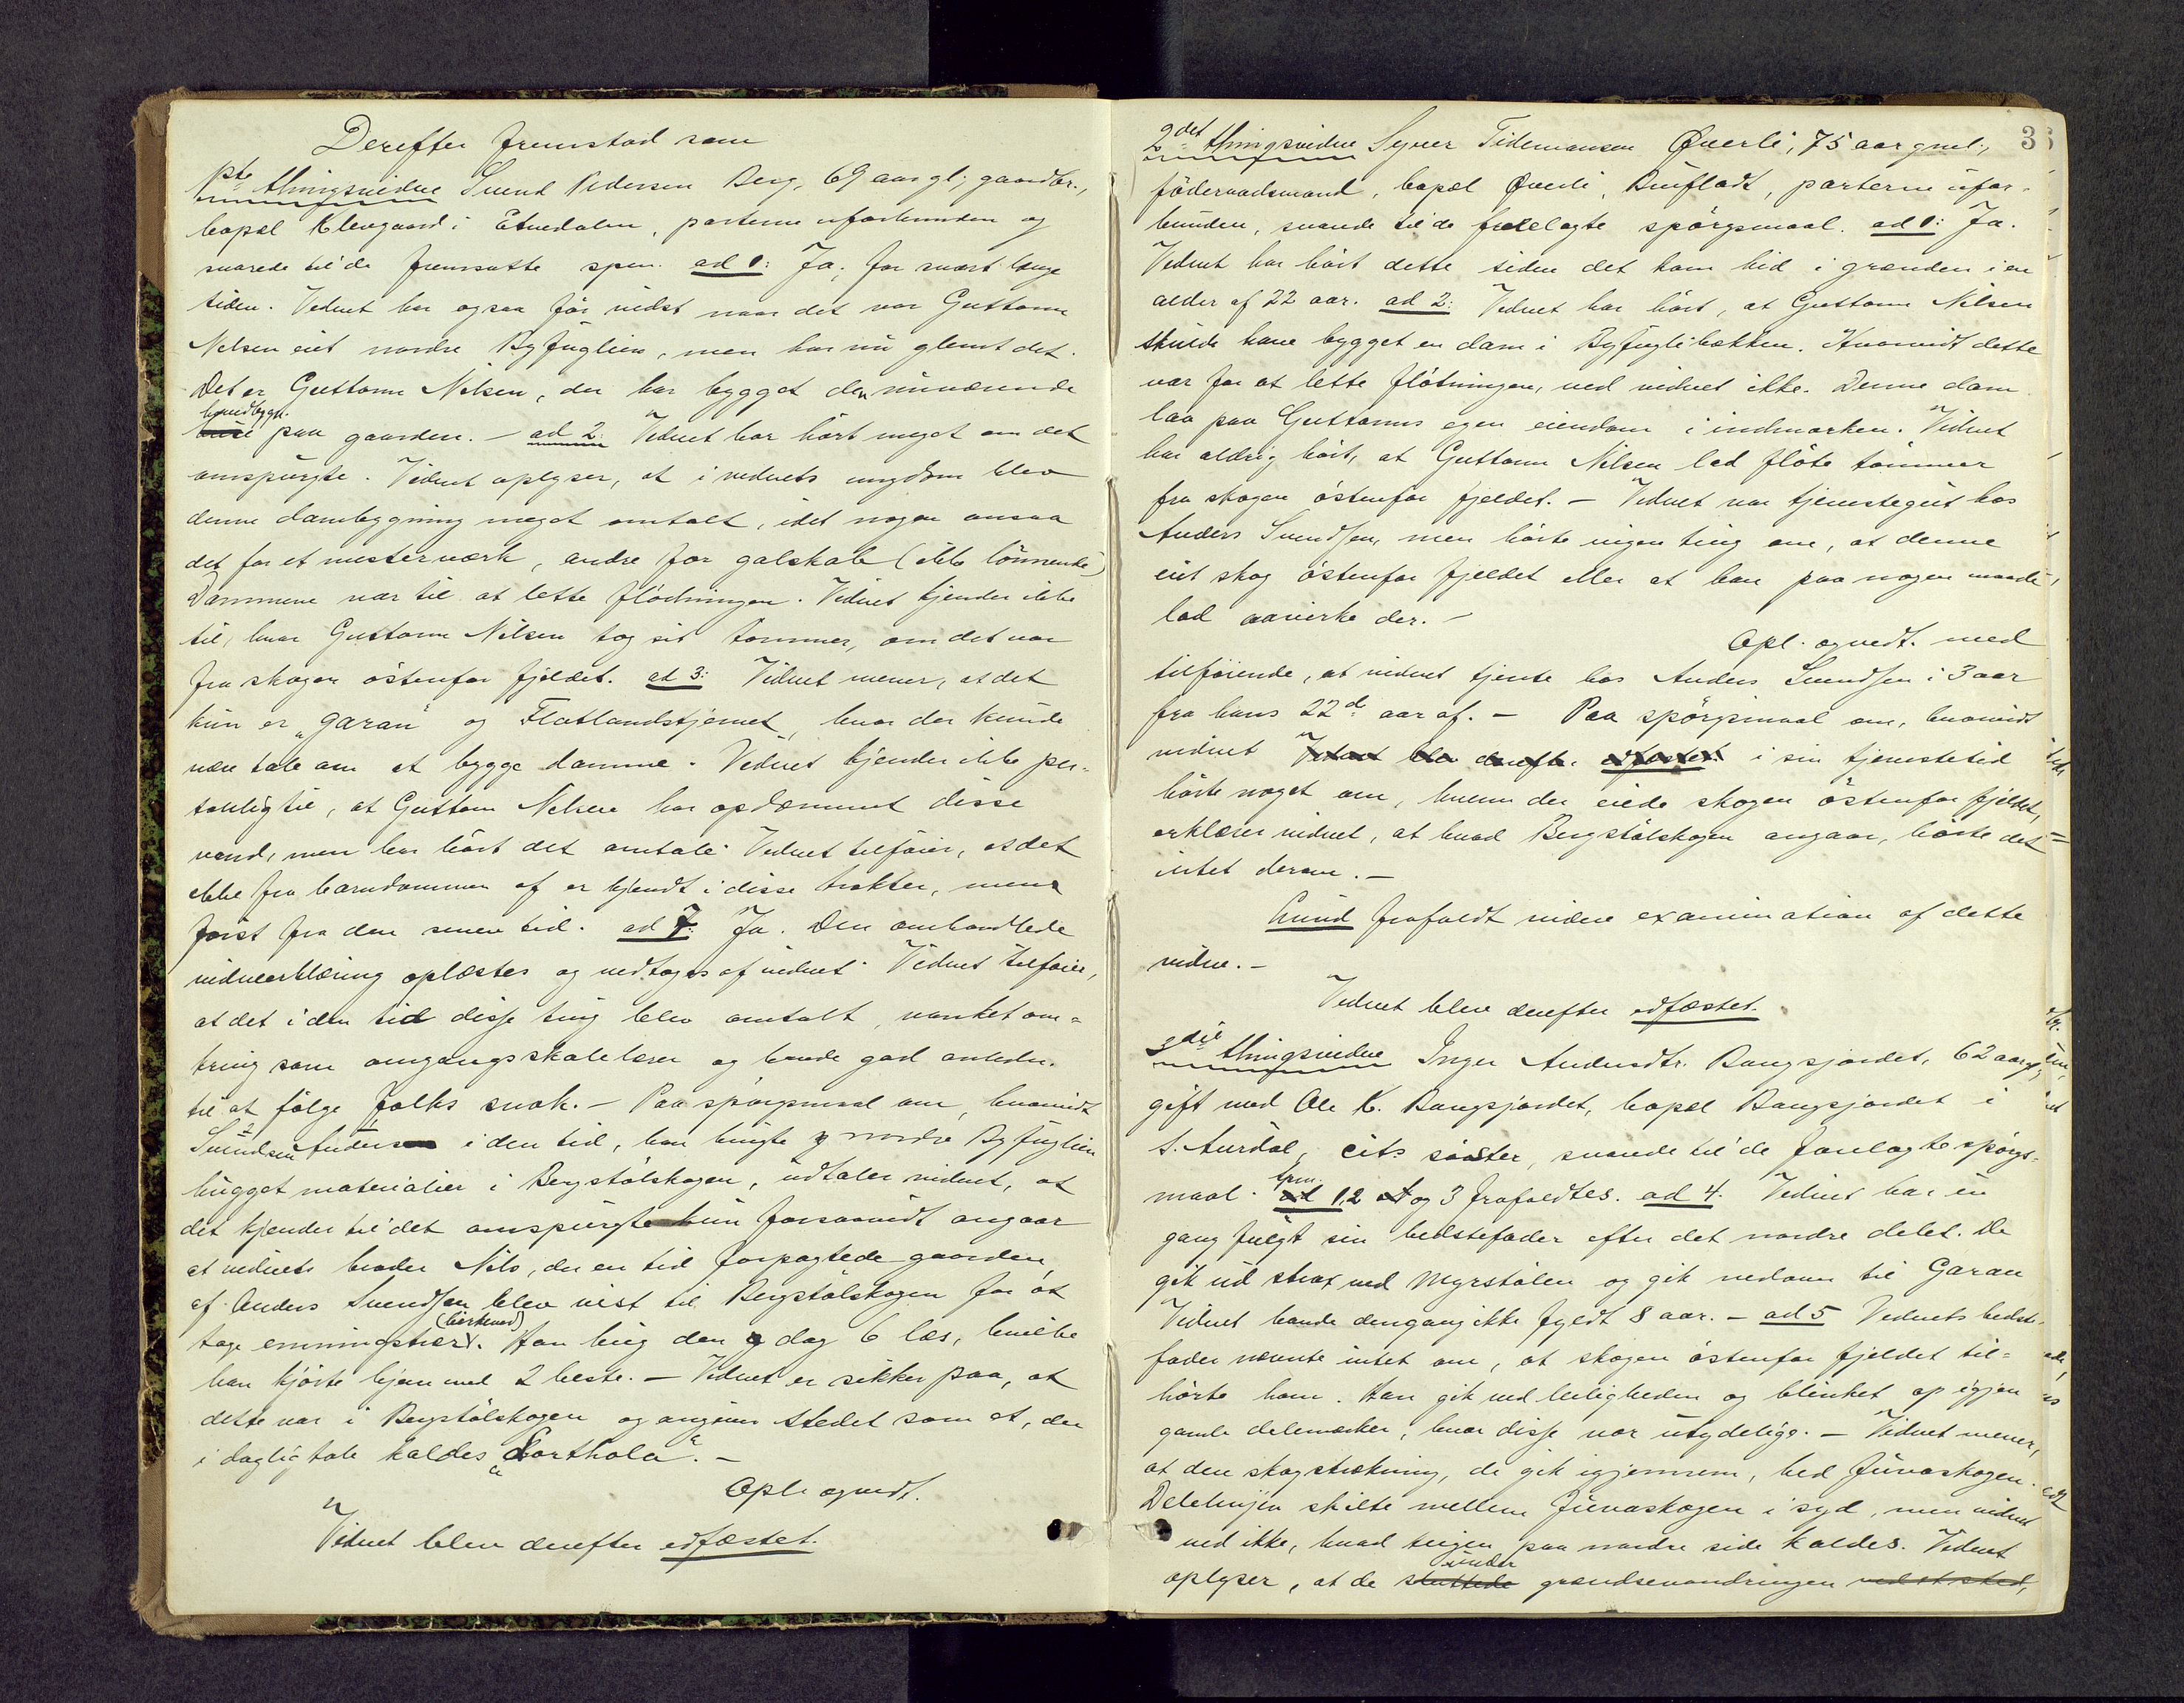 Derefter fremstod som
1ste thingsvidne Svend Pedersen Berg, 69 aar gl; gaardbr.,
bopæl Klevgaard i Etnedalen, parterne uforbunden og
svarede til de fremsatte spm. ad 1: Ja, for svært længe
siden. Vidnet har ogsaa før vidst naar det var Guttorm
Nilsen eiet nordre Byfuglien, men har nu glemt det.
Det er Guttorm Nilsen, der har bygget den nuværende
huse hovedbygn. paa gaarden. – ad 2: Vidnet har hørt meget om det
omspurgte. Vidnet oplyser, at i vidnets ungdom blev
denne dambygning meget omtalt, idet nogen ansaa
det for et mesterværk, andre for galskab (ikke lönnende)
Dammene var til at lette flödningen. Vidnet kjender ikke
til, hvor Guttorm Nilsen tog sit tømmer, om det var
fra skogen östenfor fjeldet. ad 3: Vidnet mener, at det
kun er "Garan" og Flatlandstjernet, hvor der kunde
være tale om at bygge damme. Vidnet kjender ikke per-
sonlig til, at Guttorm Nilsen har opdæmmet disse
vand, men har hört det omtale. Vidnet tilföier, at det
ikke fra barndommen af er kjendt i disse trakter, men
först fra den senere tid. ad 7: Ja. Den omhandlede
vidneerklæring oplæstes og vedtoges af vidnet. Vidnet tilföier,
at det i den tid disse ting blev omtalt, vanket om-
kring som omgangsskolelærer og havde god anledn.
til at fölge folks snak. – Paa spörgsmaal om, hvorvidt
Svendsen Anders i den tid, han brugte nordre Byfuglien
hugget materialier i Bergstölskogen, udtaler vidnet, at
det kjender til det omspurgte kun forsaavidt angaar
at vidnets broder Nils, der en tid forpagtede gaarden
af Anders Svendsen blev vist til Bergstölskogen for at
tage emningstræer (birkeved). Han hug den dag 6 læs, hvilke
han kjörte hjem med 2 heste. – Vidnet er sikker paa, at
dette var i Bergstölskogen og angiver stedet som et, der
i daglig tale kaldes "Lorthola". –
Opl. og vedt.
Vidnet blev derefter edfæstet.
2det thingsvidne Syver Tidemansen Överli, 75 aar gml.,
föderaadsmand, bopæl Överli, Brufladt, parterne ufor-
bunden, svarede til de forelagte spörgsmaal. ad 1: Ja.
Vidnet har hört dette siden det kom hid i grænden i en
alder af 22 aar. ad 2: Vidnet har hört, at Guttorm Nilsen
skulde have bygget en dam i Byfuglibækken. Hvorvidt dette
var for at lette flötningen, ved vidnet ikke. Denne dam
laa paa Guttorms egen eiendom i indmarken. Vidnet
har aldrig hört, at Guttorm Nilsen lod flöte tömmer
fra skogen östenfor fjeldet. – Vidnet var tjenestegut hos
Anders Svendsen, men hörte ingen ting om, at denne
eiet skog östenfor fjeldet eller at han paa nogen maade
lod avvirke der. –
Opl. og vedt. med
tilföiende, at vidnet tjente hos Anders Svendsen i 3 aar
fra hans 22de aar af. – Paa spörgsmaal om, hvorvidt
vidnet Vidnet blev derefter edfæstet i sin tjenestetid
hörte noget om, hvem der eiede skogen östenfor fjeldet,
erklærer vidnet, at hvad Bergstölskogen angaar, hörte det
intet derom. –
Lund frafaldt videre examination af dette
vidne. –
Vidnet blev derefter edfæstet.
3die thingsvidne Inger Andersdtr. Bangsjordet, 62 aar gl.,
gift med Ole K. Bangsjordet, bopæl Bangsjordet i
S. Aurdal, cits söster, svarede til de forelagte spörgs-
maal. ad Spm. 1, 2 og 3 frafaldtes. ad 4. Vidnet har en
gang fulgt sin bedstefader efter det nordre delet. De
gik ud strax ved Myrstölen og gik nedover til Garan
Vidnet havde dengang ikke fyldt 8 aar. – ad 5 Vidnets bedste-
fader nævnte intet om, at skogen östenfor fjeldet til-
hörte ham. Han gik ved leiligheden og blinket op igjen
gamle delemærker, hvor disse var utydelige. – Vidnet mener,
at den skogstrækning, de gik igjennem, hed Juvaskogen.
Delelinjen skilte mellem Juvaskogen i syd, men vidnet
ved ikke, hvad teigen paa nordre side kaldes. Vidnet
oplyser, at de sluttede under grændsevandringen ved et sted,